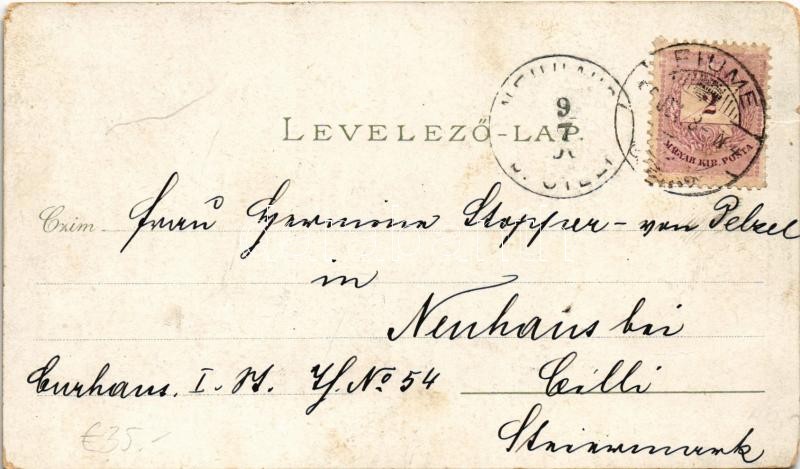 FIUME
2
MAGYAR KIR. POSTA
9
7
LEVELEZŐ-LAP.
Czim Frau Hermine Stopper-von Pelzel
in
Neuhaus bei
Curhaus. I. St. Z. No 54 Cilli
Steiermark
€35.-